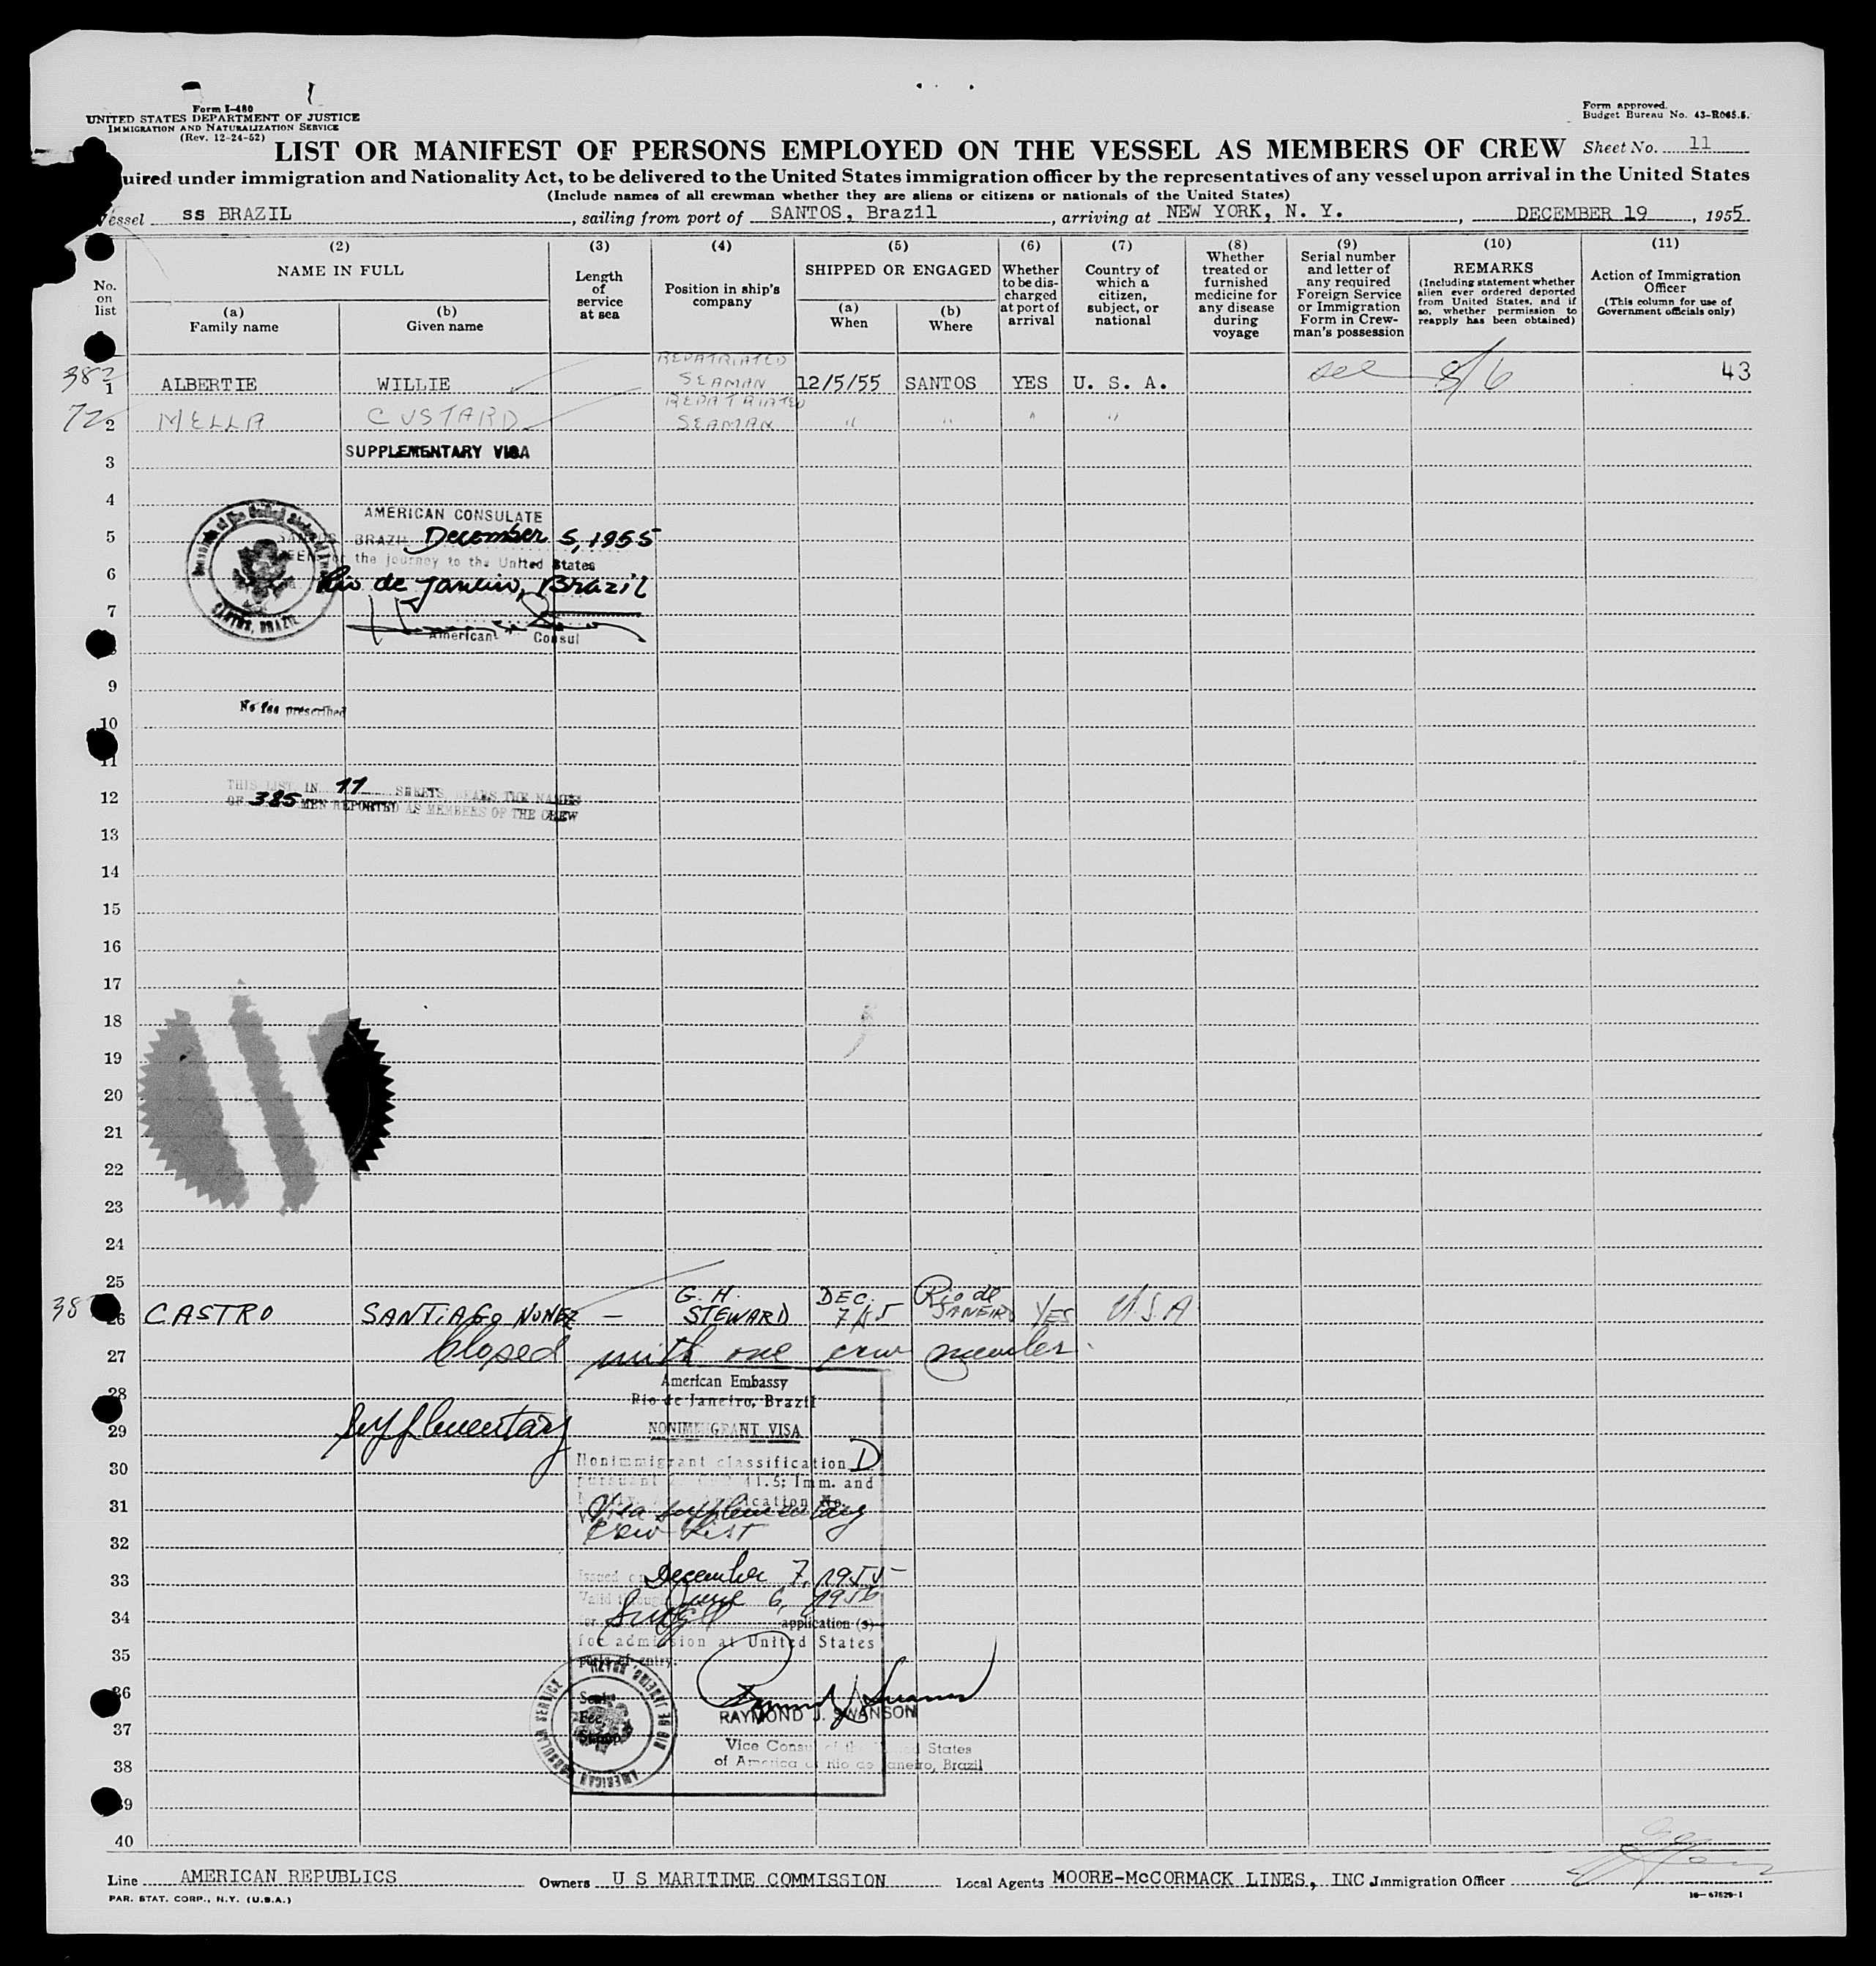 Form I-480
UNITED STATES DEPARTMENT OF JUSTICE
IMMIGRATION AND NATURALIZATION SERVICE
(Rev. 12-24-52)
Form approved.
Budget Bureau No. 43-R065.5.
LIST OR MANIFEST OF PERSONS EMPLOYED ON THE VESSEL AS MEMBERS OF CREW Sheet No. 11
uired under immigration and Nationality Act, to be delivered to the United States immigration officer by the representatives of any vessel upon arrival in the United States
(Include names of all crewman whether they are aliens or citizens or nationals of the United States)
Vessel ss BRAZIL, sailing from port of SANTOS, Brazil, arriving at NEW YORK, N. Y., DECEMBER 19, 1955
No. on list
(2) NAME IN FULL
(a) Family name
(b) Given name
(3) Length of service at sea
(4) Position in ship's company
(5) SHIPPED OR ENGAGED
(a) When
(b) Where
(6) Whether to be discharged at port of arrival
(7) Country of which a citizen, subject, or national
(8) Whether treated or furnished medicine for any disease during voyage
(9) Serial number and letter of any required Foreign Service or Immigration Form in Crewman's possession
(10) REMARKS (Including statement whether alien ever ordered deported from United States, and if so, whether permission to reapply has been obtained)
(11) Action of Immigration Officer (This column for use of Government officials only)
1 ALBERTIE WILLIE REPATRIATED SEAMAN 12/5/55 SANTOS YES U. S. A. 43
2 MELLA CUSTARD REPATRIATED SEAMAN " " " "
3 SUPPLEMENTARY VISA
4 AMERICAN CONSULATE
5 BRAZIL December 5, 1955
the journey to the United States
6 Rio de Janeiro, Brazil
7
American Consul
SANTOS, BRAZIL
9
No fee prescribed
10
11
THIS LIST IN 11 SHEETS BEARS THE NAMES
12 OF 385 MEN REPORTED AS MEMBERS OF THE CREW
13
14
15
16
17
18
19
20
21
22
23
24
25
26 CASTRO SANTIAGO NUNEZ — G. H. STEWARD DEC. 7/55 Rio de JANEIRO YES U.S.A
27 Closed with one crew member.
American Embassy
28 Rio de Janeiro, Brazil
29 Supplementary NONIMMIGRANT VISA
30 Nonimmigrant classification D
pursuant 41.5; Imm. and
31 Visa supplementary
32 Crew List
33 Issued on December 7, 1955
Valid through June 6, 1956
34 for Single application(s)
for admission at United States
35 ports of entry.
36 Seal
37 Fee RAYMOND J. SWANSON
Stamp
Vice Consul of the United States
38 of America at Rio de Janeiro, Brazil
AMERICAN CONSULAR SERVICE RIO DE JANEIRO, BRAZIL
39
40
Line AMERICAN REPUBLICS Owners U S MARITIME COMMISSION Local Agents MOORE-McCORMACK LINES, INC Immigration Officer
PAR. STAT. CORP., N.Y. (U.S.A.)
16—67629-1